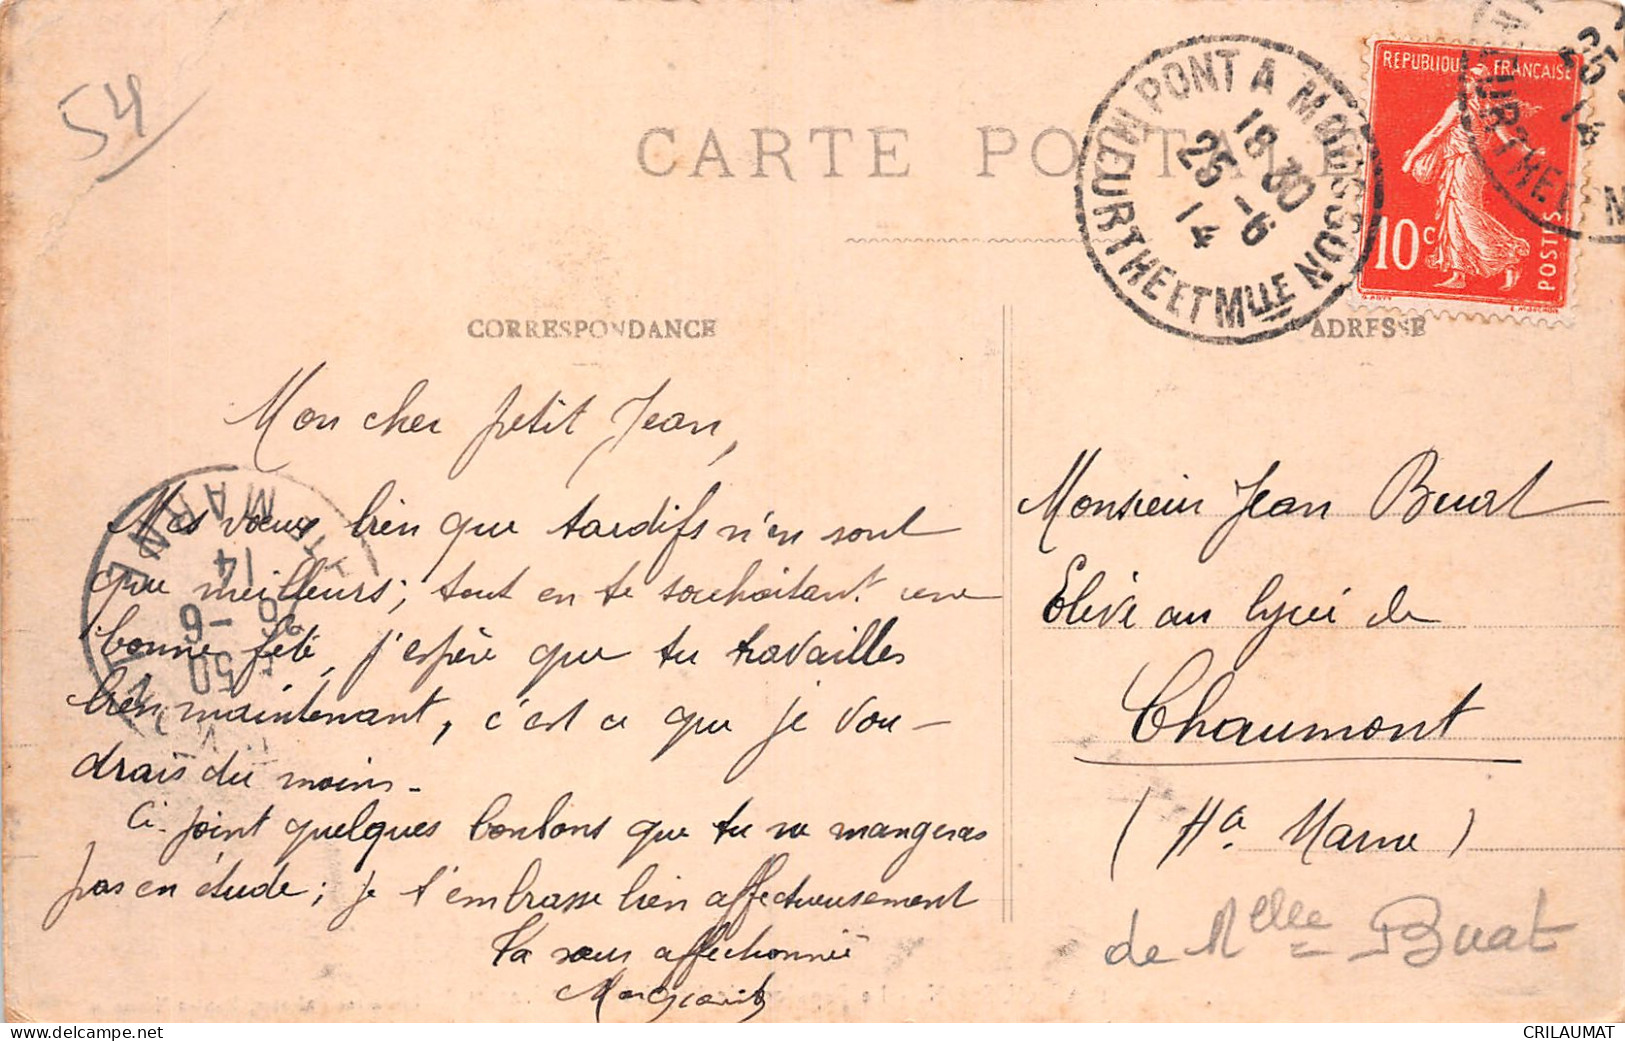 54
CARTE POSTALE
PONT A MOUSSON
MEURTHE ET Mlle
18 30
25 -6
14
REPUBLIQUE FRANÇAISE
10c
POSTES
25
14
CORRESPONDANCE
ADRESSE
Mon cher petit Jean,
Mes vœux bien que tardifs n'en sont
que meilleurs; tout en te souhaitant une
bonne fête, j'espère que tu travailles
bien maintenant, c'est ce que je vou-
drais du moins.
Ci-joint quelques bonbons que tu ne mangeras
pas en étude; je t'embrasse bien affectueusement
Ta sœur affectionnée
Marguerite
Monsieur Jean Buat
Elève au lycée de
Chaumont
(Hte Marne)
de Mlle Buat
HTE MARNE
5 50
26 -6
14
CRILAUMAT